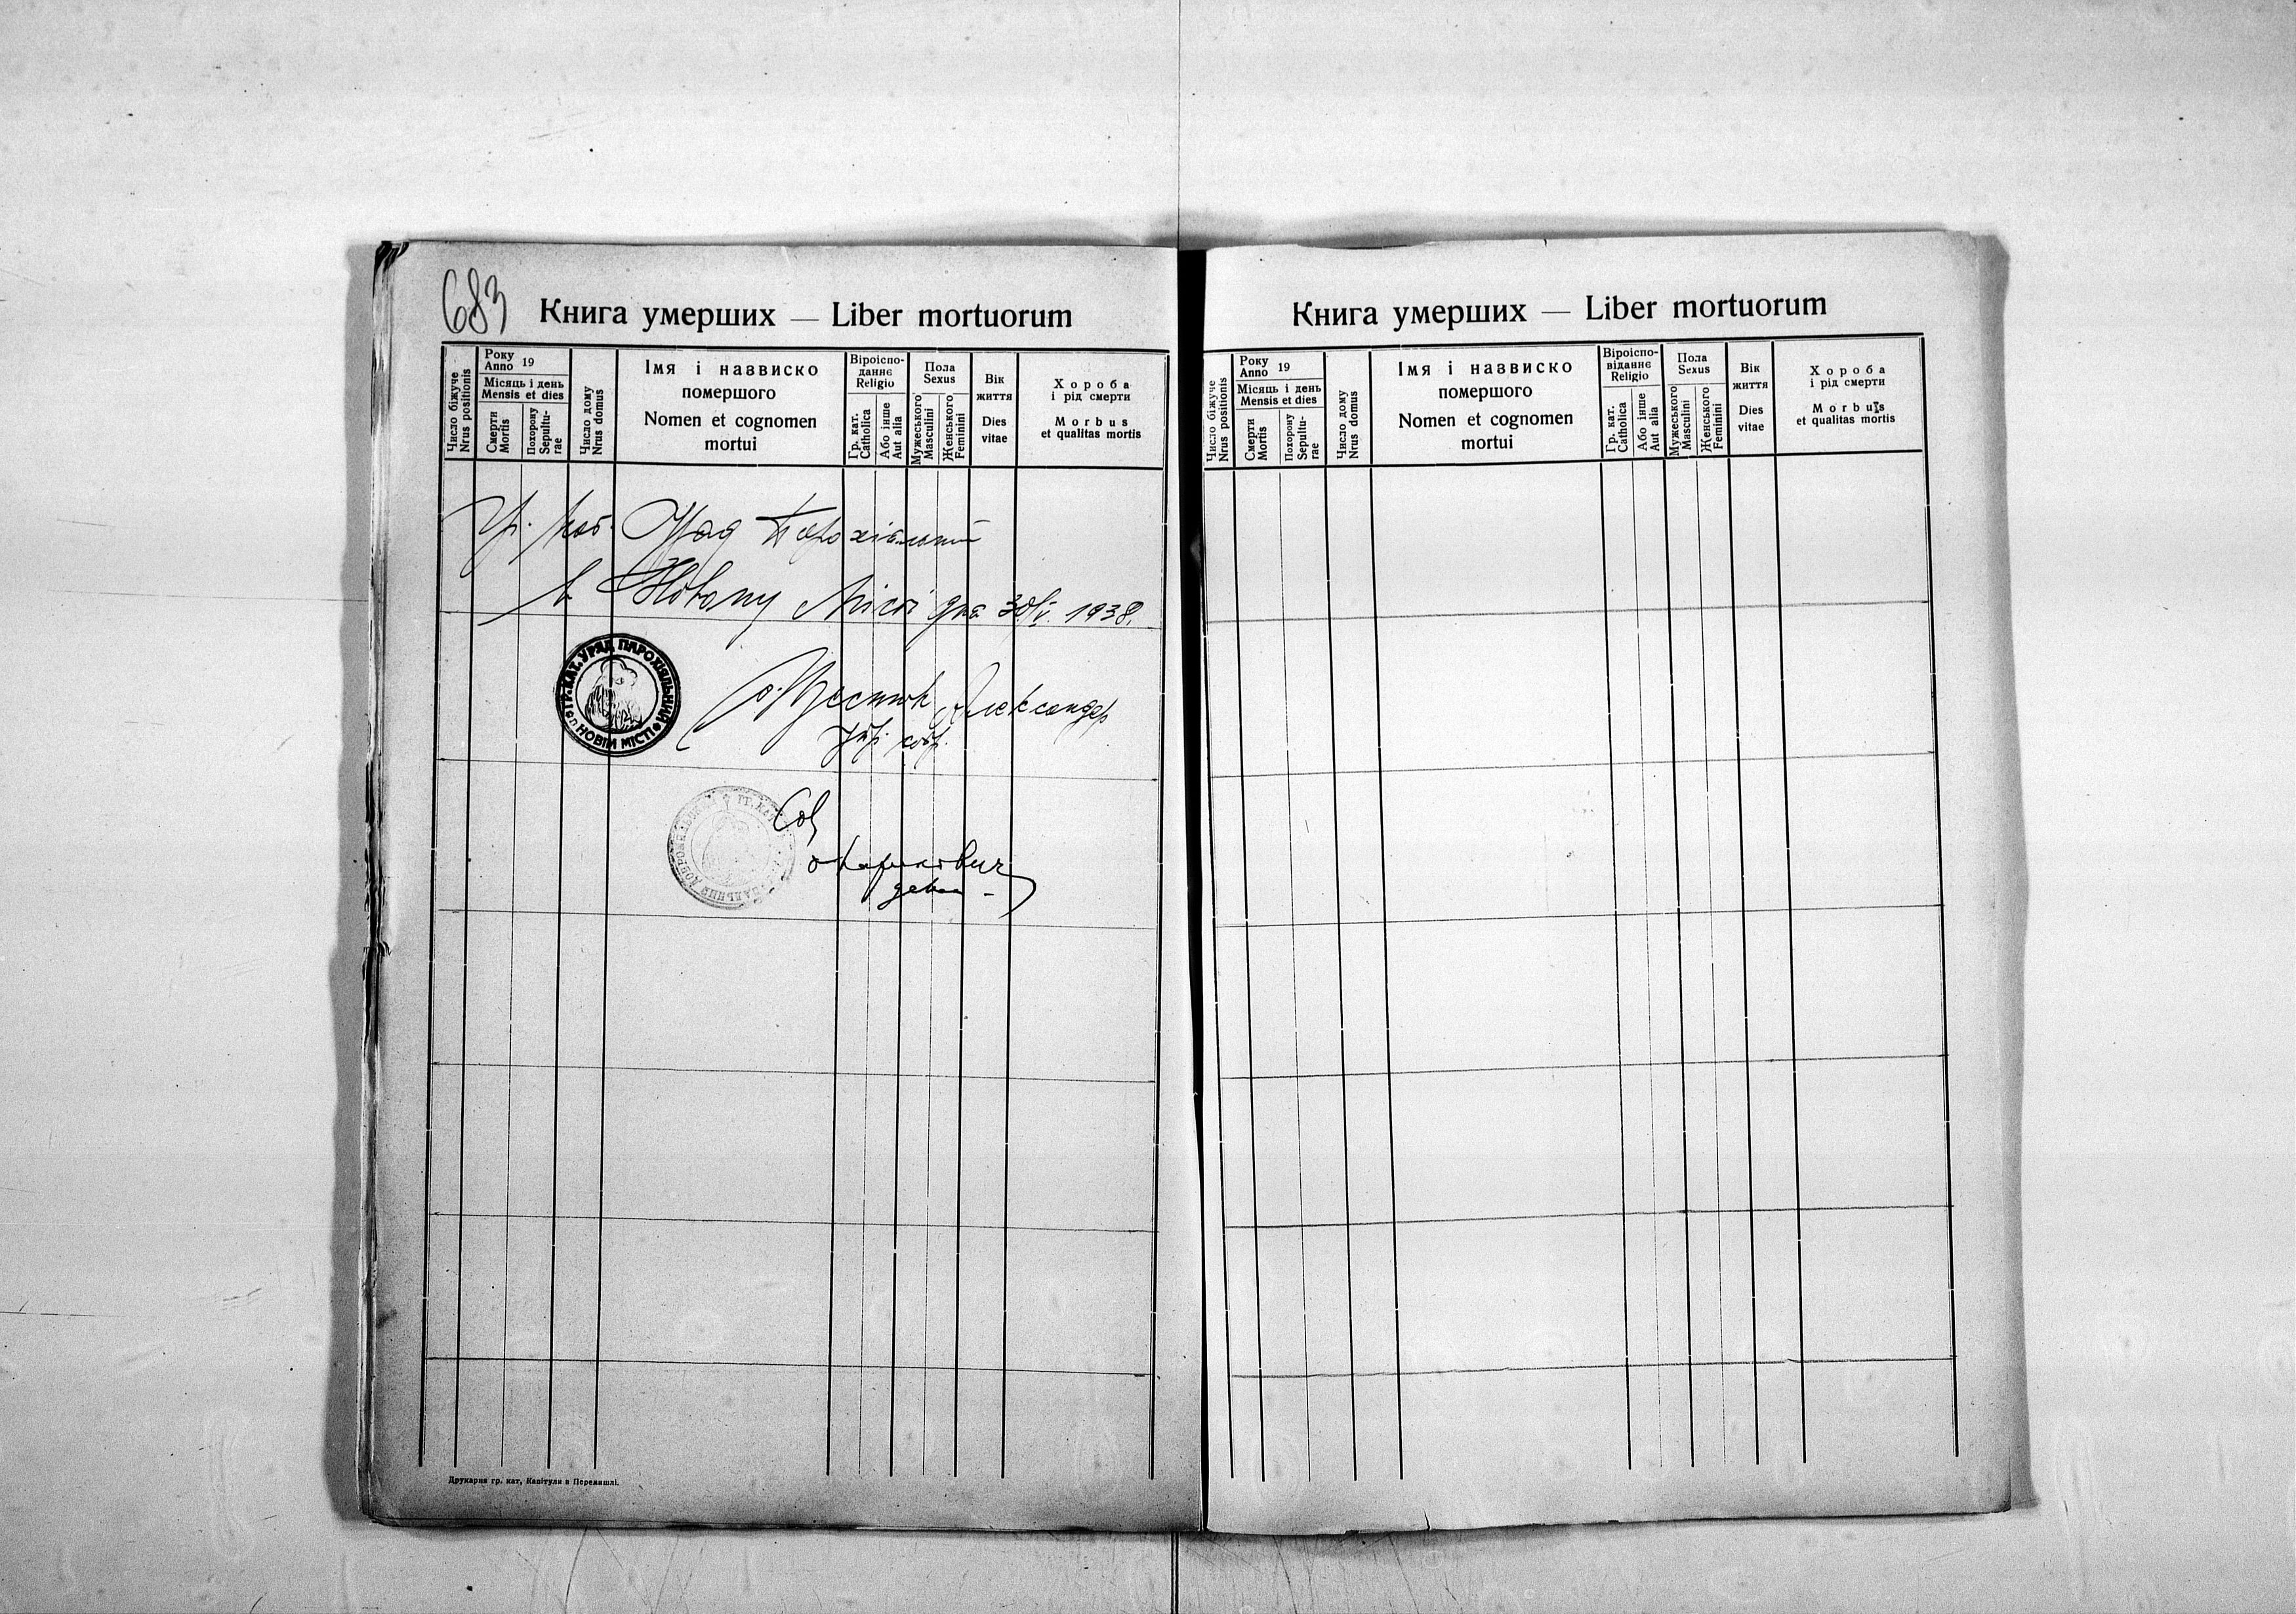 683
Книга умерших — Liber mortuorum
Число біжуче
Nrus positionis
Року
Anno 19
Місяць і день
Mensis et dies
Смерти
Mortis
Похорону
Sepultu-
rae
Число дому
Nrus domus
Імя і назвиско
помершого
Nomen et cognomen
mortui
Віроіспо-
данне
Religio
Гр. кат.
Catholica
Або інше
Aut alia
Пола
Sexus
Мужеського
Masculini
Женського
Feminini
Вік
життя
Dies
vitae
Хороба
і рід смерти
Morbus
et qualitas mortis
Гр. кат. Уряд Парохіяльний
в Новому Місті дня 30/V. 1938.
ГР. КАТ. УРЯД ПАРОХІЯЛЬНИЙ
В НОВІМ МІСТІ
Александер
декан
Друкарня гр. кат. Капітули в Перемишлі.
Книга умерших — Liber mortuorum
Число біжуче
Nrus positionis
Року
Anno 19
Місяць і день
Mensis et dies
Смерти
Mortis
Похорону
Sepultu-
rae
Число дому
Nrus domus
Імя і назвиско
помершого
Nomen et cognomen
mortui
Віроіспо-
віданне
Religio
Гр. кат.
Catholica
Або інше
Aut alia
Пола
Sexus
Мужеського
Masculini
Женського
Feminini
Вік
життя
Dies
vitae
Хороба
і рід смерти
Morbus
et qualitas mortis